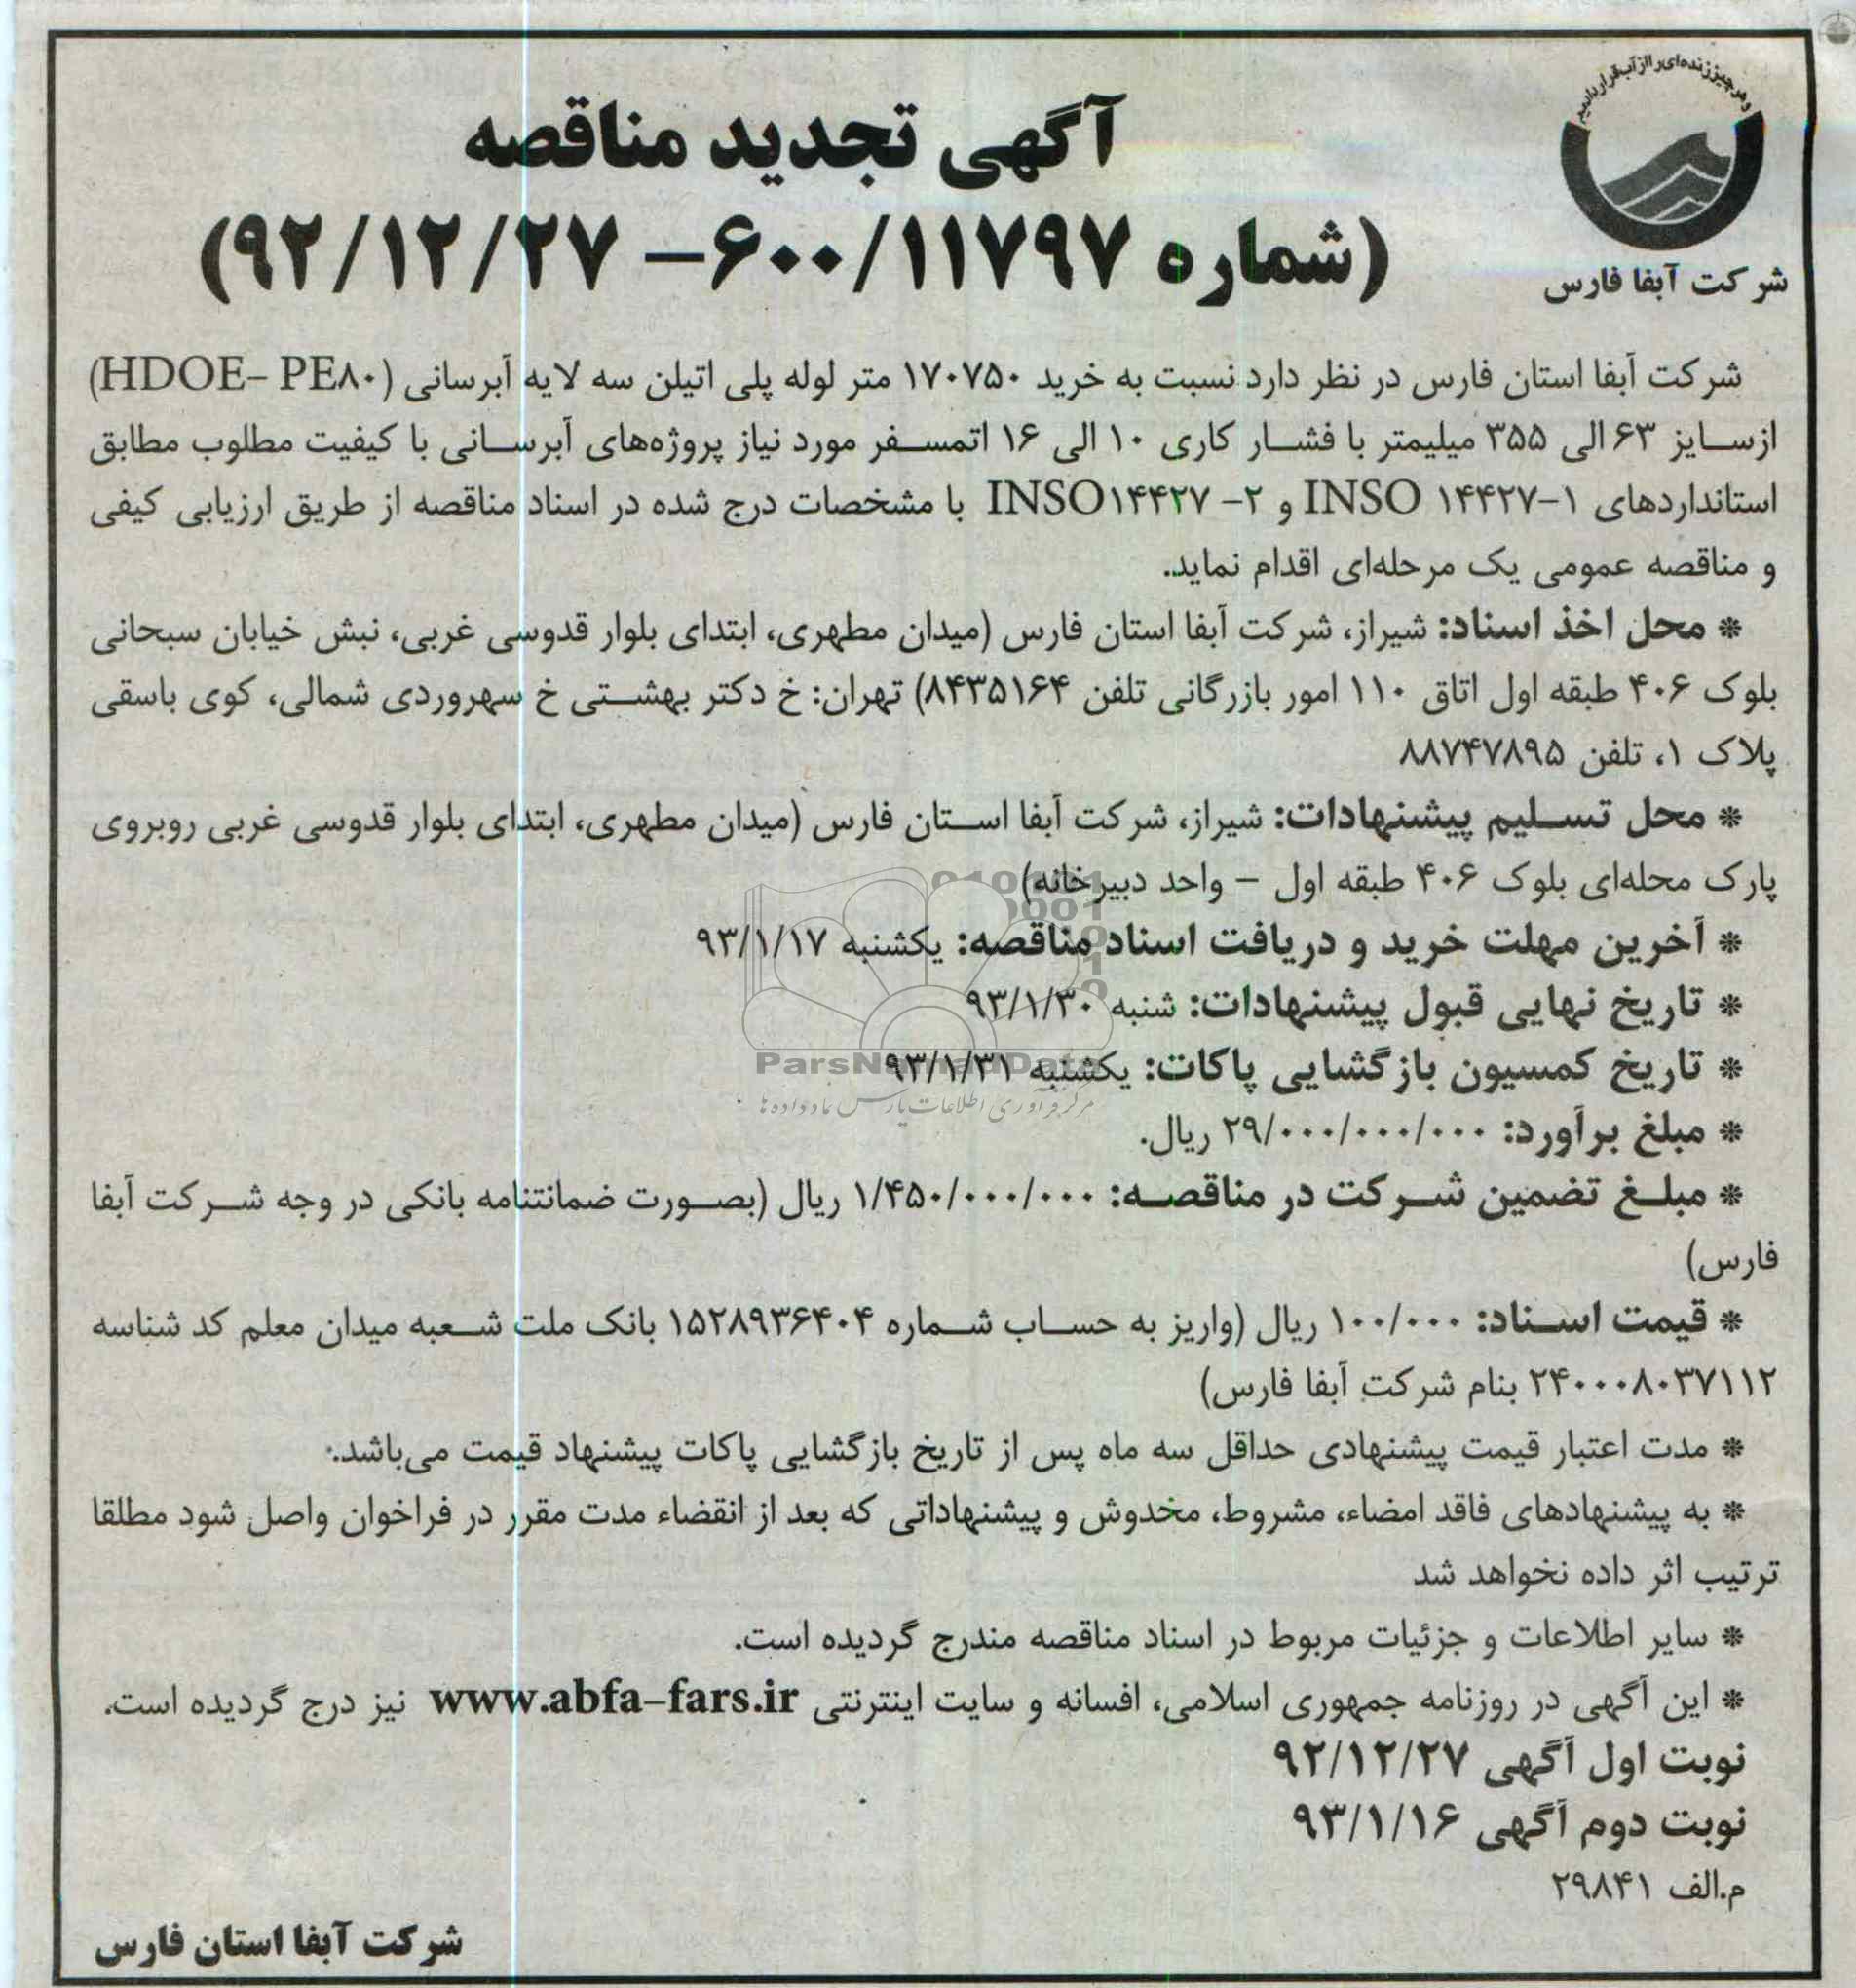 و هر چیز زنده‌ای را از آب قرار دادیم
شرکت آبفا فارس
آگهی تجدید مناقصه
(شماره ۶۰۰/۱۱۷۹۷– ۹۲/۱۲/۲۷)
شرکت آبفا استان فارس در نظر دارد نسبت به خرید ۱۷۰۷۵۰ متر لوله پلی اتیلن سه لایه آبرسانی (HDOE– PE۸۰)
ازسایز ۶۳ الی ۳۵۵ میلیمتر با فشار کاری ۱۰ الی ۱۶ اتمسفر مورد نیاز پروژه‌های آبرسانی با کیفیت مطلوب مطابق
استانداردهای INSO ۱۴۴۲۷-۱ و INSO۱۴۴۲۷ -۲ با مشخصات درج شده در اسناد مناقصه از طریق ارزیابی کیفی
و مناقصه عمومی یک مرحله‌ای اقدام نماید.
* محل اخذ اسناد: شیراز، شرکت آبفا استان فارس (میدان مطهری، ابتدای بلوار قدوسی غربی، نبش خیابان سبحانی
بلوک ۴۰۶ طبقه اول اتاق ۱۱۰ امور بازرگانی تلفن ۸۴۳۵۱۶۴) تهران: خ دکتر بهشتی خ سهروردی شمالی، کوی باسقی
پلاک ۱، تلفن ۸۸۷۴۷۸۹۵
* محل تسلیم پیشنهادات: شیراز، شرکت آبفا استان فارس (میدان مطهری، ابتدای بلوار قدوسی غربی روبروی
پارک محله‌ای بلوک ۴۰۶ طبقه اول – واحد دبیرخانه)
* آخرین مهلت خرید و دریافت اسناد مناقصه: یکشنبه ۹۳/۱/۱۷
* تاریخ نهایی قبول پیشنهادات: شنبه ۹۳/۱/۳۰
* تاریخ کمسیون بازگشایی پاکات: یکشنبه ۹۳/۱/۳۱
ParsNamadData
مرکز فرآوری اطلاعات پارس نماد داده ها
* مبلغ برآورد: ۲۹/۰۰۰/۰۰۰/۰۰۰ ریال.
* مبلغ تضمین شرکت در مناقصه: ۱/۴۵۰/۰۰۰/۰۰۰ ریال (بصورت ضمانتنامه بانکی در وجه شرکت آبفا
فارس)
* قیمت اسناد: ۱۰۰/۰۰۰ ریال (واریز به حساب شماره ۱۵۲۸۹۳۶۴۰۴ بانک ملت شعبه میدان معلم کد شناسه
۲۴۰۰۰۸۰۳۷۱۱۲ بنام شرکت آبفا فارس)
* مدت اعتبار قیمت پیشنهادی حداقل سه ماه پس از تاریخ بازگشایی پاکات پیشنهاد قیمت می‌باشد.
* به پیشنهادهای فاقد امضاء، مشروط، مخدوش و پیشنهاداتی که بعد از انقضاء مدت مقرر در فراخوان واصل شود مطلقا
ترتیب اثر داده نخواهد شد
* سایر اطلاعات و جزئیات مربوط در اسناد مناقصه مندرج گردیده است.
* این آگهی در روزنامه جمهوری اسلامی، افسانه و سایت اینترنتی www.abfa-fars.ir نیز درج گردیده است.
نوبت اول آگهی ۹۲/۱۲/۲۷
نوبت دوم آگهی ۹۳/۱/۱۶
م.الف ۲۹۸۴۱
شرکت آبفا استان فارس